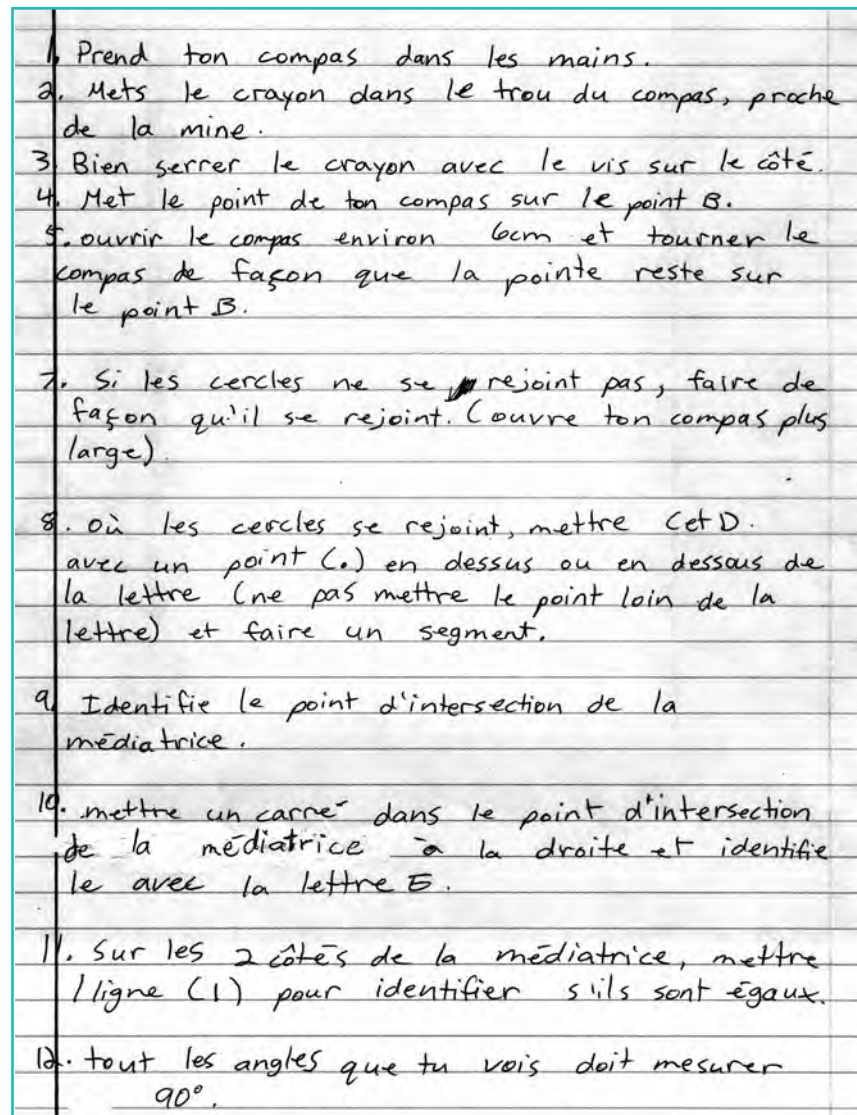 1. Prend ton compas dans les mains.
2. Mets le crayon dans le trou du compas, proche
de la mine.
3. Bien serrer le crayon avec le vis sur le côté.
4. Met le point de ton compas sur le point B.
5. ouvrir le compas environ 6cm et tourner le
compas de façon que la pointe reste sur
le point B.
7. Si les cercles ne se rejoint pas, faire de
façon qu'il se rejoint. (ouvre ton compas plus
large).
8. où les cercles se rejoint, mettre C et D.
avec un point (.) en dessus ou en dessous de
la lettre (ne pas mettre le point loin de la
lettre) et faire un segment.
9. Identifie le point d'intersection de la
médiatrice.
10. mettre un carré dans le point d'intersection
de la médiatrice à la droite et identifie
le avec la lettre E.
11. Sur les 2 côtés de la médiatrice, mettre
1 ligne (1) pour identifier s'ils sont égaux.
12. tout les angles que tu vois doit mesurer
90°.